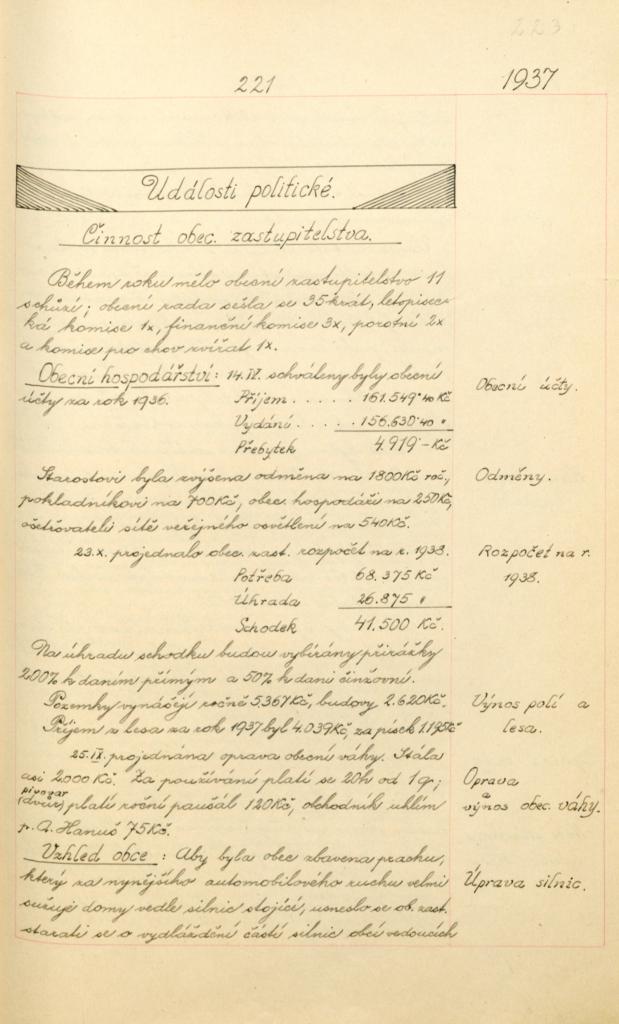 223
221
1937
Události politické.
Činnost obec. zastupitelstva.
Během roku mělo obecní zastupitelstvo 11
schůzí; obecní rada sešla se 35krát, letopisec-
ká komise 1x, finanční komise 3x, porotní 2x
a komise pro chov zvířat 1x.
Obecní hospodářství: 14.IV. schváleny byly obecní
Obecní účty.
účty za rok 1936. Příjem . . . . . 161.549·40 Kč
Vydání . . . . . 156.630·40 "
Přebytek 4.919·- Kč
Starostovi byla zvýšena odměna na 1800Kč roč.,
Odměny.
pokladníkovi na 700Kč, obec. hospodáři na 250Kč,
ošetřovateli sítě veřejného osvětlení na 540Kč.
23.X. projednalo obec. zast. rozpočet na r. 1938.
Rozpočet na r.
1938.
Potřeba 68.375 Kč
Úhrada 26.875 "
Schodek 41.500 Kč.
Na úhradu schodku budou vybírány přirážky
200% k daním přímým a 50% k dani činžovní.
Pozemky vynášejí ročně 5.367Kč, budovy 2.620Kč.
Výnos polí a
lesa.
Příjem z lesa za rok 1937 byl 4.039Kč, za písek Kč
25.IX. projednána oprava obecní váhy. Stála
asi 2.000 Kč. Za používání platí se 20h od 1 q;
Oprava
a
výnos obec. váhy.
pivovar
(dvůr) platí roční paušál 120Kč, obchodník uhlím
p. A. Hanuš 75Kč.
Vzhled obce: Aby byla obec zbavena prachu,
který za nynějšího automobilového ruchu velmi
Úprava silnic.
sužuje domy vedle silnic stojící, usneslo se ob. zast.
starati se o vydláždění částí silnic obcí vedoucích